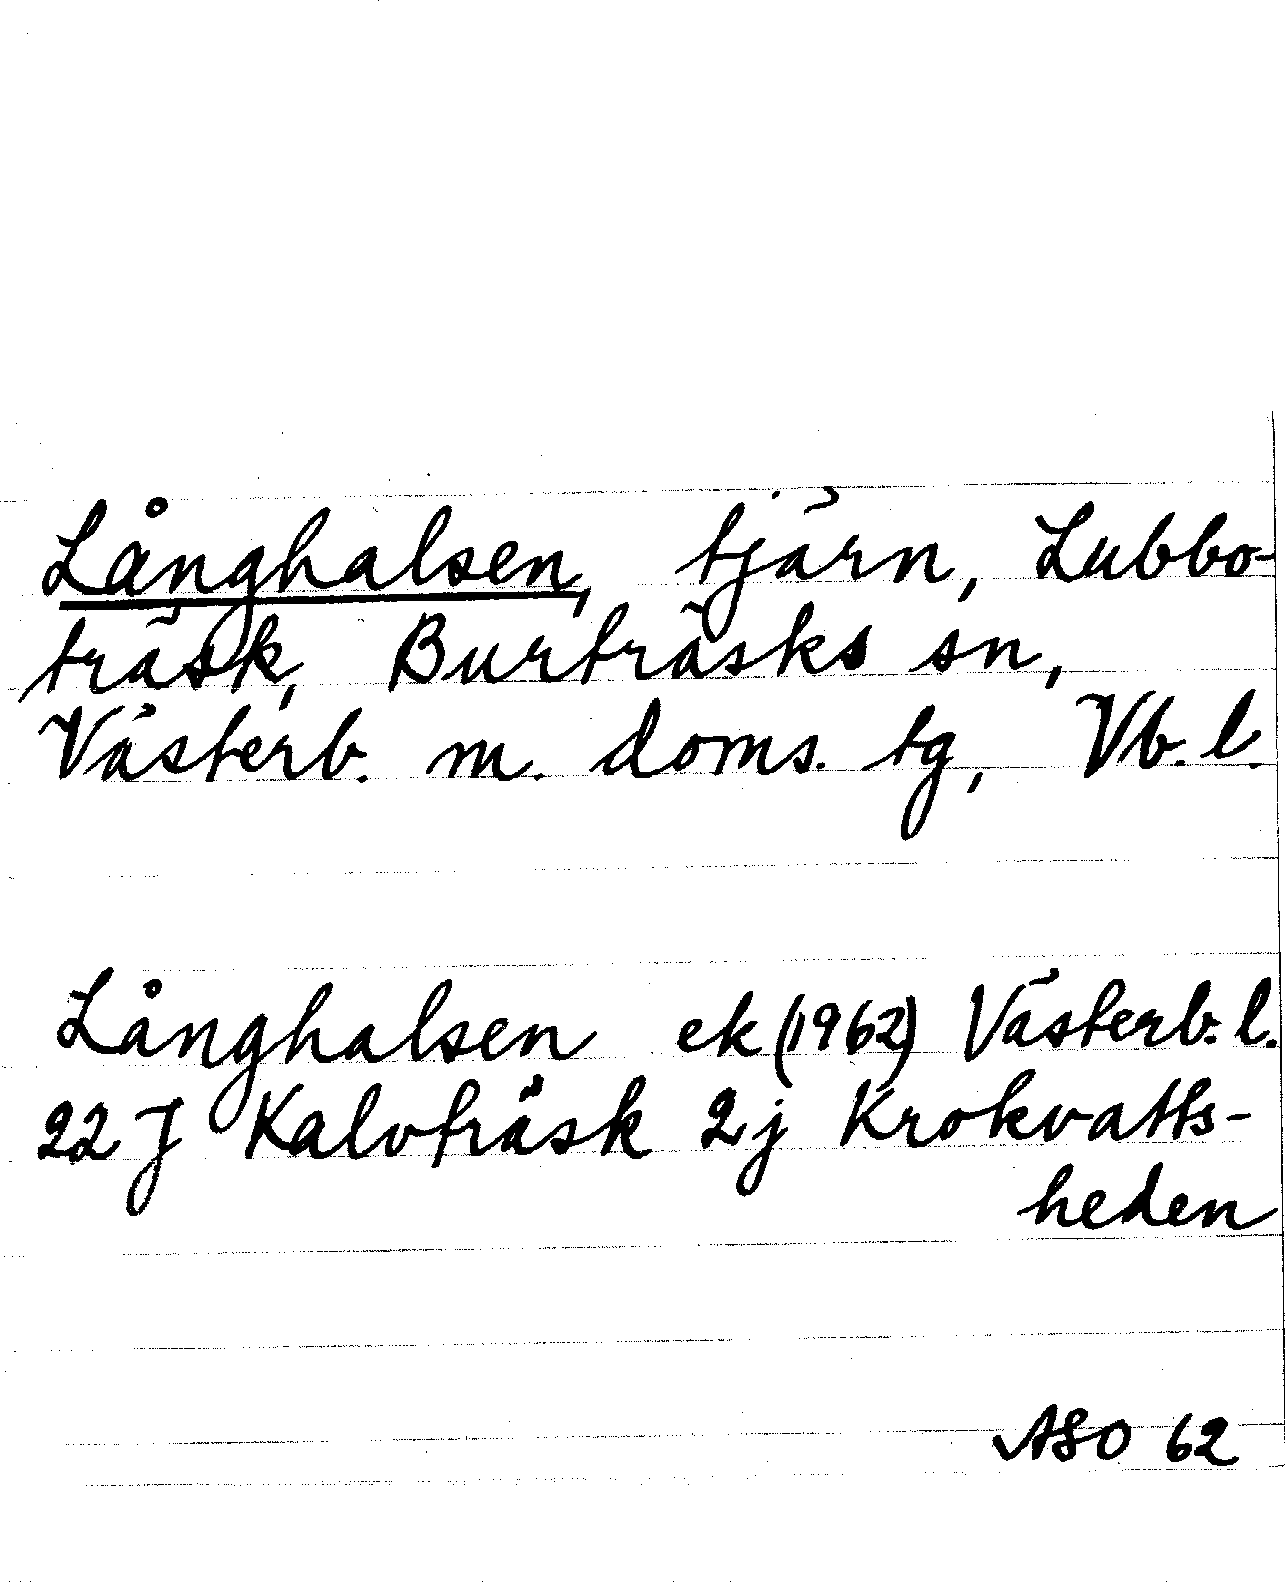 Långhalsen, tjärn, Lubbo-
träsk, Burträsks sn,
Västerb. m. doms. tg, Vb. l.
Långhalsen ek (1962) Västerb. l.
22 J Kalvträsk 2j Krokvatts-
heden
ASO 62